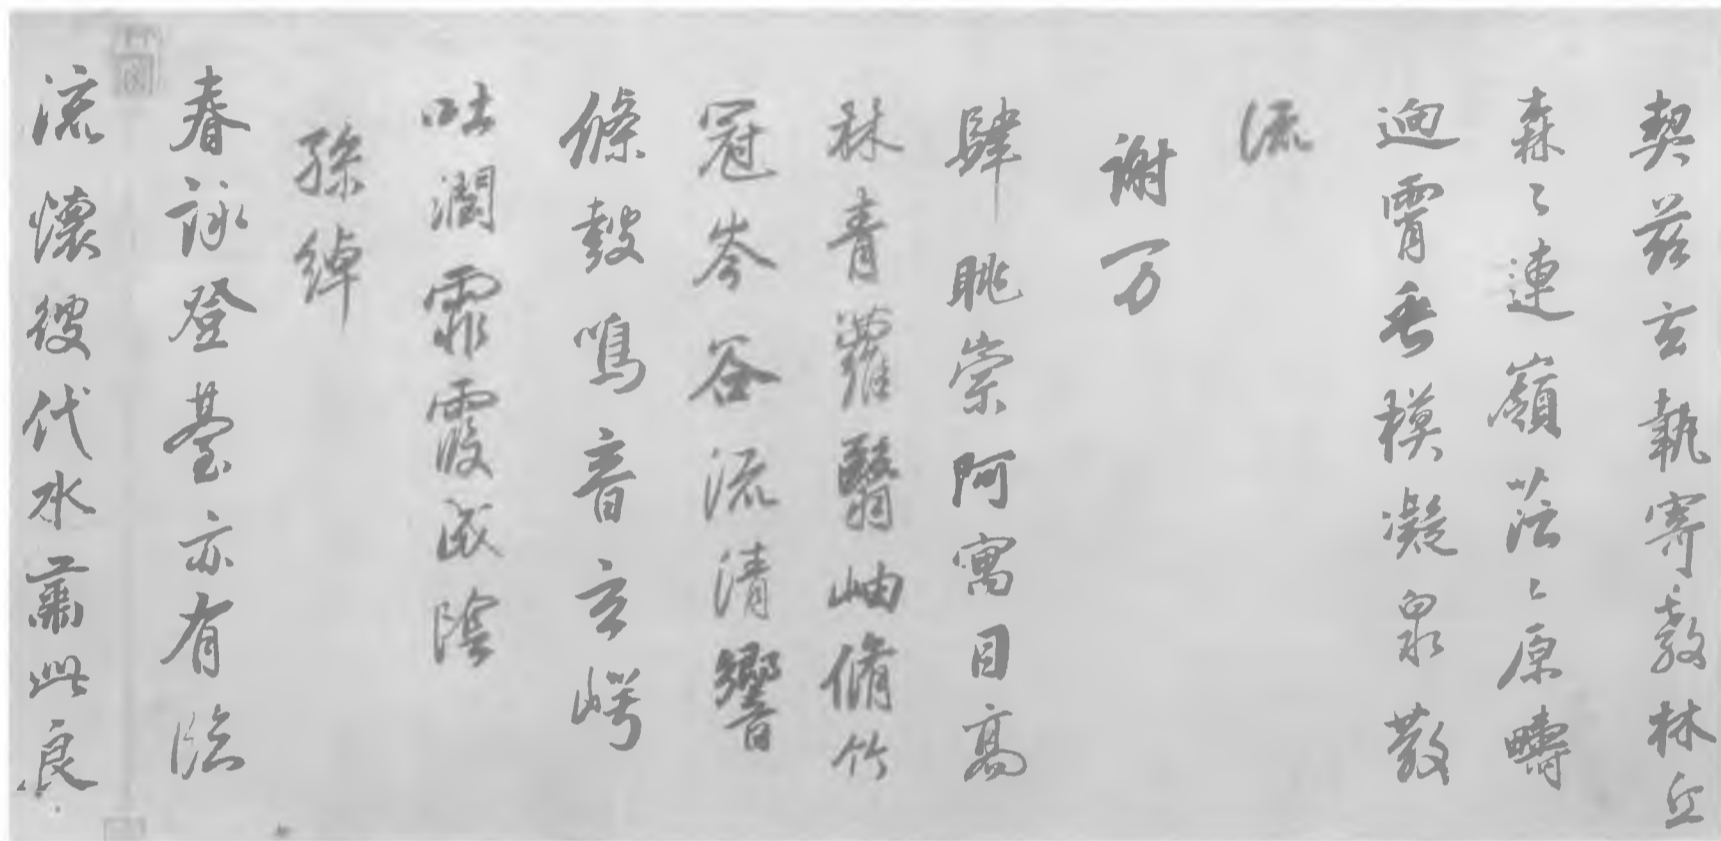 契茲玄執寄敖林丘
森々連嶺茫々原疇
逈霄垂模凝泉散
流
謝万
肆眺崇阿寓目高
林青蘿翳岫脩竹
冠岑谷流清響
條鼓鳴音玄崿
吐潤霏霧成陰
孫綽
春詠登臺亦有臨
流懷彼伐木肅此良